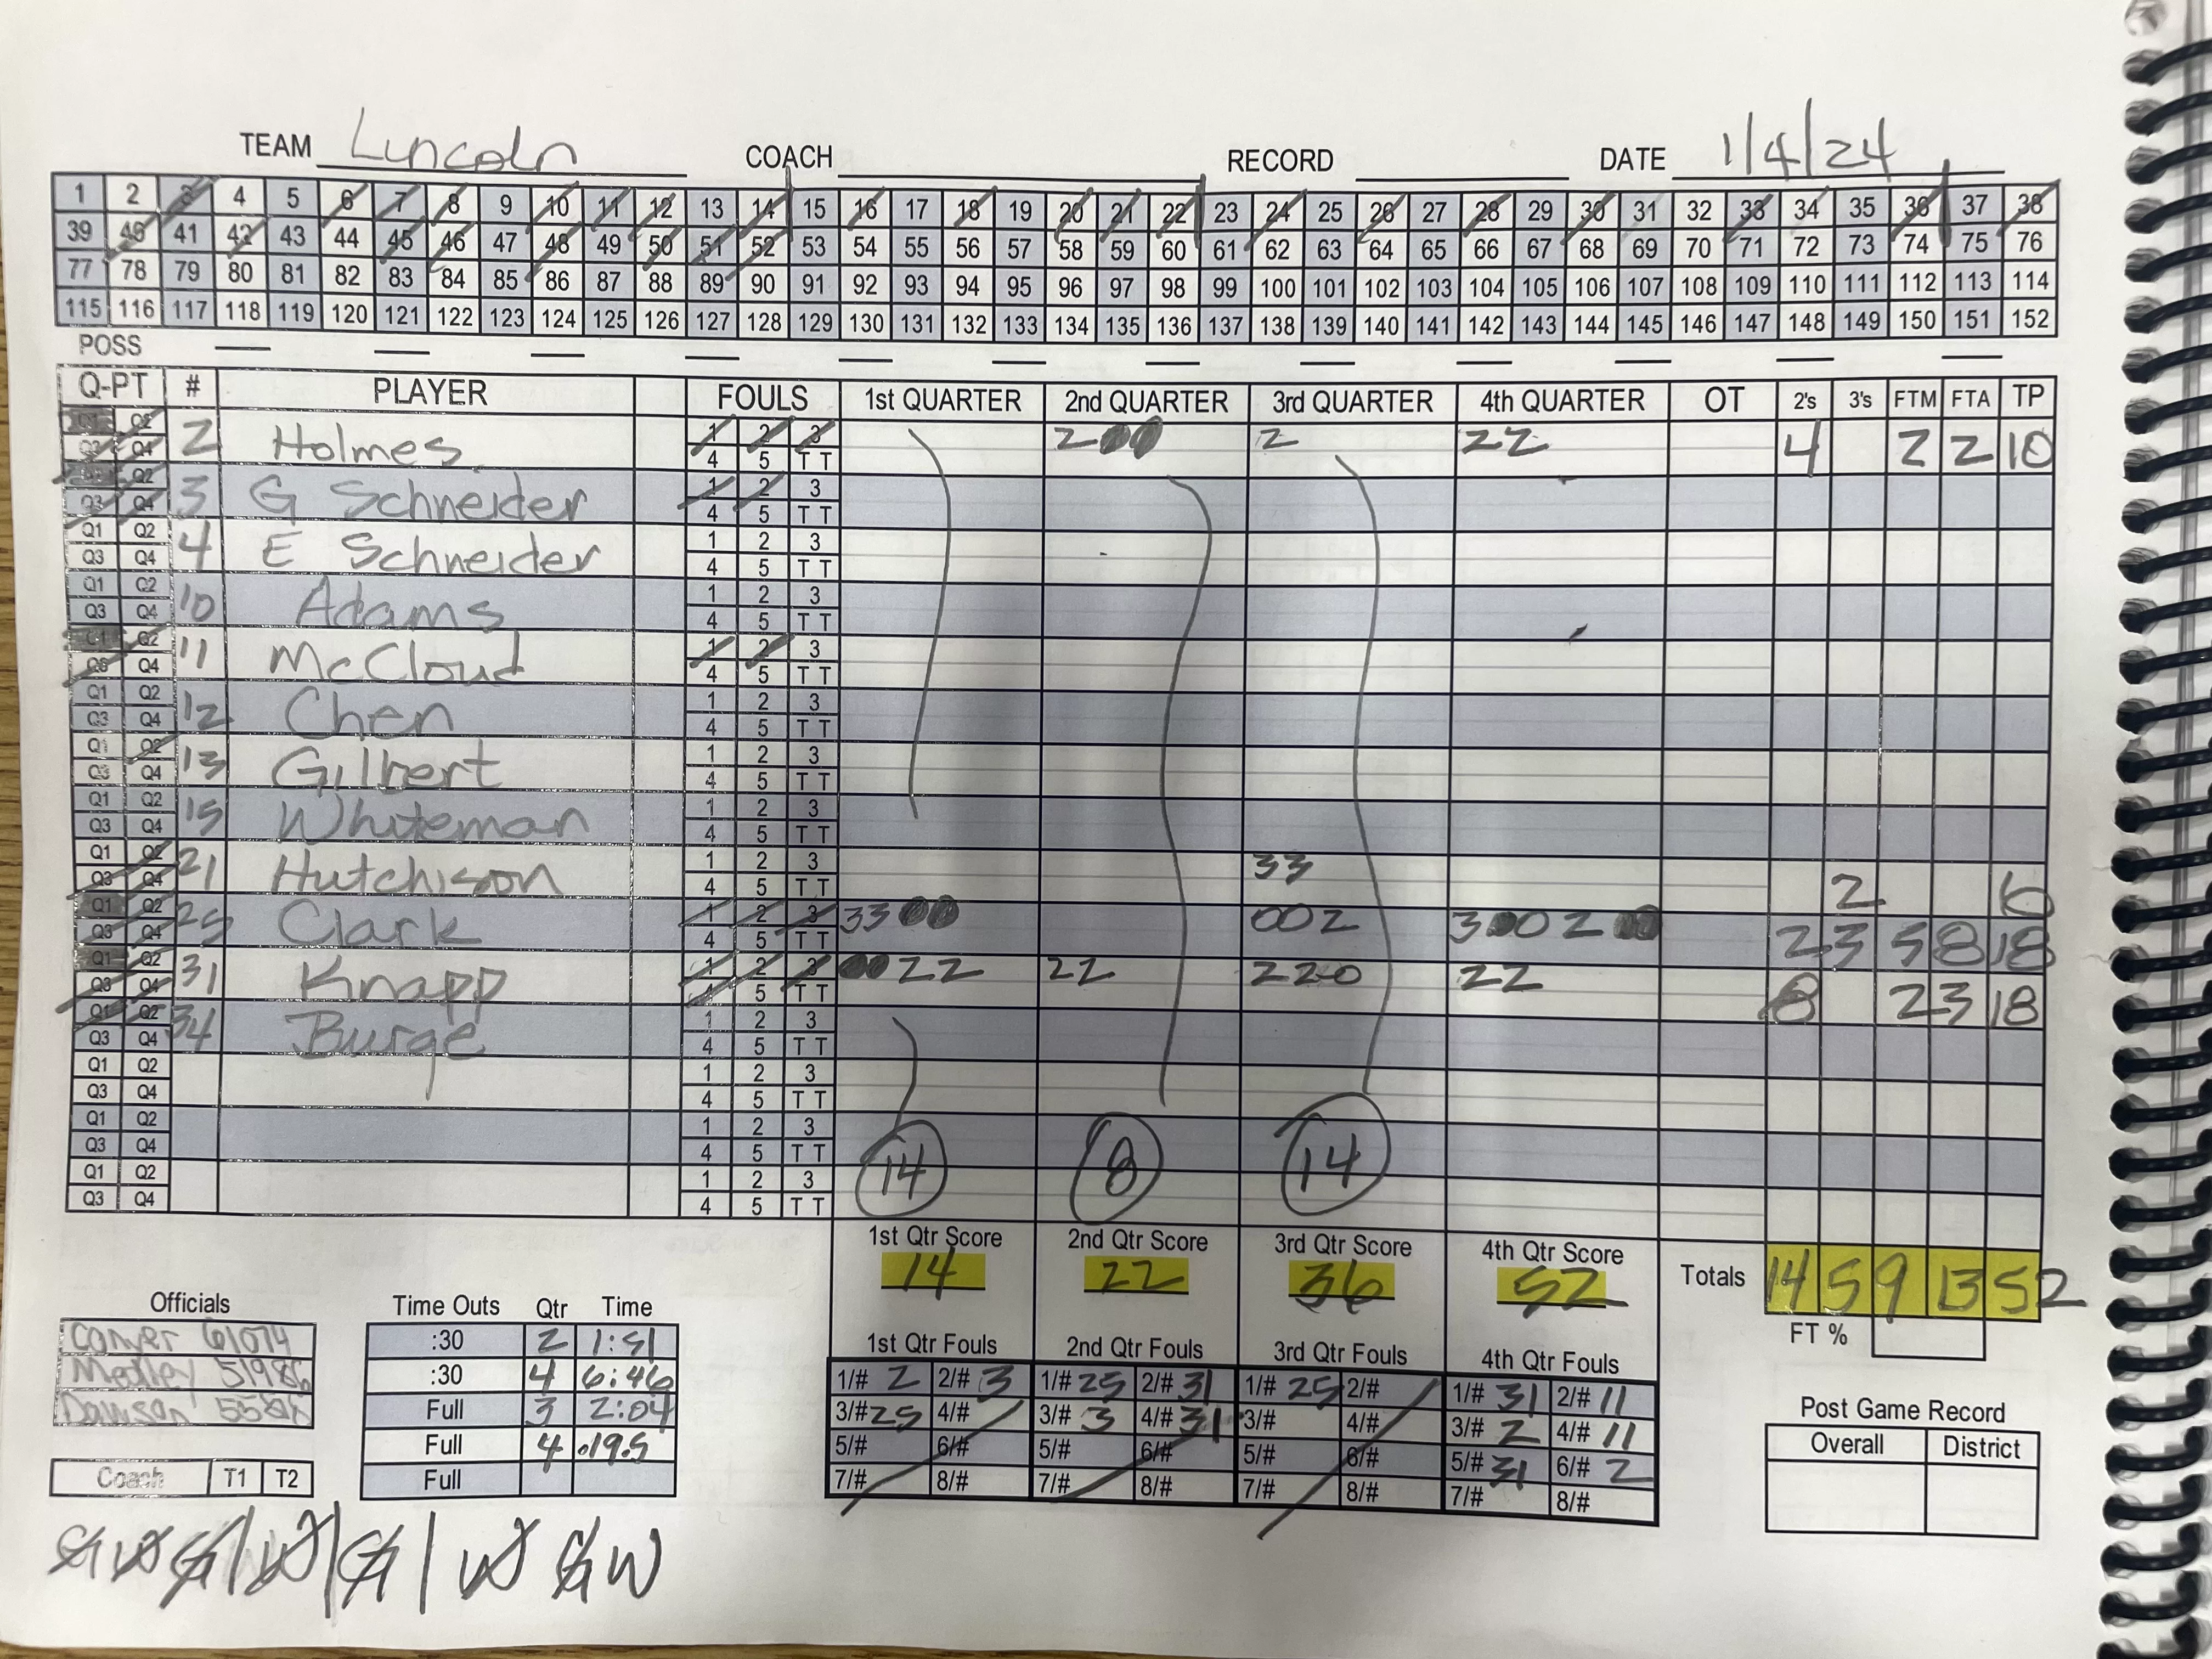 TEAM Lincoln COACH RECORD DATE 1/4/24
1 2 3 4 5 6 7 8 9 10 11 12 13 14 15 16 17 18 19 20 21 22 23 24 25 26 27 28 29 30 31 32 33 34 35 36 37 38
39 40 41 42 43 44 45 46 47 48 49 50 51 52 53 54 55 56 57 58 59 60 61 62 63 64 65 66 67 68 69 70 71 72 73 74 75 76
77 78 79 80 81 82 83 84 85 86 87 88 89 90 91 92 93 94 95 96 97 98 99 100 101 102 103 104 105 106 107 108 109 110 111 112 113 114
115 116 117 118 119 120 121 122 123 124 125 126 127 128 129 130 131 132 133 134 135 136 137 138 139 140 141 142 143 144 145 146 147 148 149 150 151 152
POSS
Q-PT # PLAYER FOULS 1st QUARTER 2nd QUARTER 3rd QUARTER 4th QUARTER OT 2's 3's FTM FTA TP
Q1 Q2 1 2 3
Q3 Q4 2 Holmes 4 5 T T 2 0 0 2 22 4 2 2 10
Q1 Q2 1 2 3
Q3 Q4 3 G Schneider 4 5 T T
Q1 Q2 1 2 3
Q3 Q4 4 E Schneider 4 5 T T
Q1 Q2 1 2 3
Q3 Q4 10 Adams 4 5 T T
Q1 Q2 1 2 3
Q3 Q4 11 McCloud 4 5 T T
Q1 Q2 1 2 3
Q3 Q4 12 Chen 4 5 T T
Q1 Q2 1 2 3
Q3 Q4 13 Gilbert 4 5 T T
Q1 Q2 1 2 3
Q3 Q4 15 Whiteman 4 5 T T
Q1 Q2 1 2 3
Q3 Q4 21 Hutchison 4 5 T T 33 2 6
Q1 Q2 1 2 3
Q3 Q4 25 Clark 4 5 T T 33 0 0 002 3 0 0 2 0 0 2 3 5 8 18
Q1 Q2 1 2 3
Q3 Q4 31 Knapp 4 5 T T 0 0 22 22 220 22 8 2 3 18
Q1 Q2 1 2 3
Q3 Q4 34 Burge 4 5 T T
Q1 Q2 1 2 3
Q3 Q4 4 5 T T
Q1 Q2 1 2 3
Q3 Q4 4 5 T T
Q1 Q2 1 2 3
Q3 Q4 4 5 T T
14 8 14
1st Qtr Score 2nd Qtr Score 3rd Qtr Score 4th Qtr Score
14 22 36 52 Totals 14 5 9 13 52
FT %
Officials
Medley 51986
Time Outs Qtr Time
:30 2 1:51
:30 4 6:46
Full 3 2:04
Full 4 :19.5
Full
Coach T1 T2
1st Qtr Fouls 2nd Qtr Fouls 3rd Qtr Fouls 4th Qtr Fouls
1/# 2 2/# 3 1/# 25 2/# 31 1/# 25 2/# 1/# 31 2/# 11
3/# 25 4/# 3/# 3 4/# 31 3/# 4/# 3/# 2 4/# 11
5/# 6/# 5/# 6/# 5/# 6/# 5/# 31 6/# 2
7/# 8/# 7/# 8/# 7/# 8/# 7/# 8/#
Post Game Record
Overall District
G W G | W | G | W G W